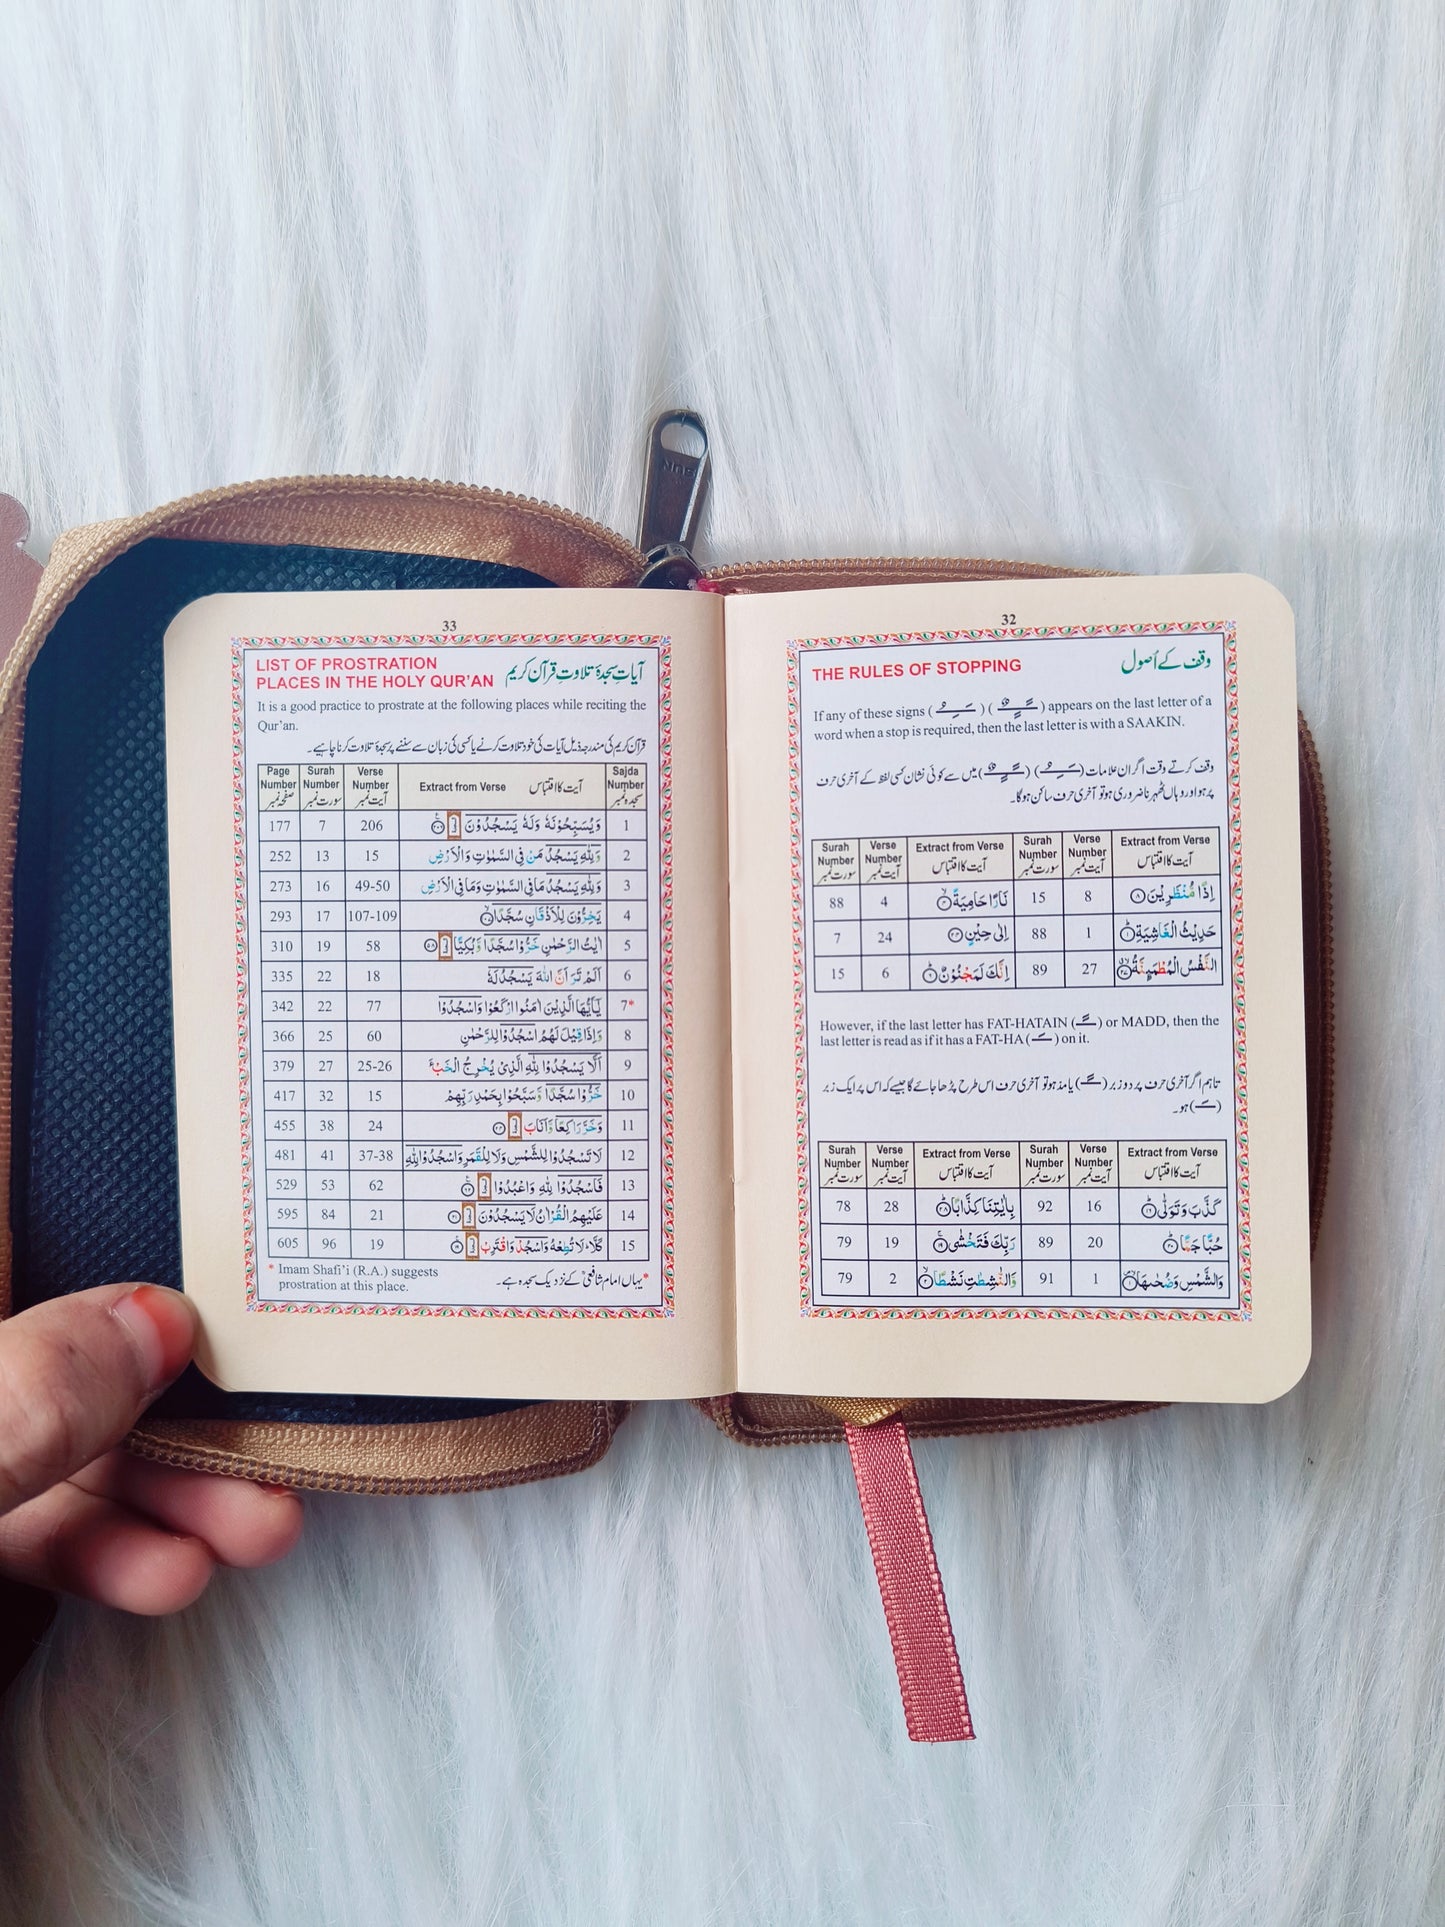 33
LIST OF PROSTRATION
PLACES IN THE HOLY QUR'AN آیاتِ سجدۂ تلاوتِ قرآن کریم
It is a good practice to prostrate at the following places while reciting the
Qur'an.
قرآن کریم کی مندرجہ ذیل آیات کی خود تلاوت کرنے یا کسی کی زبان سے سننے پر سجدۂ تلاوت کرنا چاہیے۔
Page Number صفحہ نمبر | Surah Number سورت نمبر | Verse Number آیت نمبر | Extract from Verse آیت کا اقتباس | Sajda Number سجدہ نمبر
177 7 206 وَيُسَبِّحُوْنَهٗ وَلَهٗ يَسْجُدُوْنَ 1
252 13 15 وَلِلّٰهِ يَسْجُدُ مَنْ فِى السَّمٰوٰتِ وَالْاَرْضِ 2
273 16 49-50 وَلِلّٰهِ يَسْجُدُ مَا فِى السَّمٰوٰتِ وَمَا فِى الْاَرْضِ 3
293 17 107-109 يَخِرُّوْنَ لِلْاَذْقَانِ سُجَّدًا 4
310 19 58 اٰيٰتُ الرَّحْمٰنِ خَرُّوْا سُجَّدًا وَّبُكِيًّا 5
335 22 18 اَلَمْ تَرَ اَنَّ اللّٰهَ يَسْجُدُ لَهٗ 6
342 22 77 يٰٓاَيُّهَا الَّذِيْنَ اٰمَنُوا ارْكَعُوْا وَاسْجُدُوْا 7*
366 25 60 وَاِذَا قِيْلَ لَهُمُ اسْجُدُوْا لِلرَّحْمٰنِ 8
379 27 25-26 اَلَّا يَسْجُدُوْا لِلّٰهِ الَّذِىْ يُخْرِجُ الْخَبْءَ 9
417 32 15 خَرُّوْا سُجَّدًا وَّسَبَّحُوْا بِحَمْدِ رَبِّهِمْ 10
455 38 24 وَخَرَّ رَاكِعًا وَّاَنَابَ 11
481 41 37-38 لَا تَسْجُدُوْا لِلشَّمْسِ وَلَا لِلْقَمَرِ وَاسْجُدُوْا لِلّٰهِ 12
529 53 62 فَاسْجُدُوْا لِلّٰهِ وَاعْبُدُوْا 13
595 84 21 عَلَيْهِمُ الْقُرْاٰنُ لَا يَسْجُدُوْنَ 14
605 96 19 كَلَّا ؕ لَا تُطِعْهُ وَاسْجُدْ وَاقْتَرِبْ 15
* Imam Shafi'i (R.A.) suggests
prostration at this place.
*یہاں امام شافعیؒ کے نزدیک سجدہ ہے۔
32
THE RULES OF STOPPING وقف کے اُصول
If any of these signs ( ) ( ) appears on the last letter of a
word when a stop is required, then the last letter is with a SAAKIN.
وقف کرتے وقت اگر ان علامات ( ) ( ) میں سے کوئی نشان کسی لفظ کے آخری حرف
پر ہو اور وہاں ٹھہرنا ضروری ہو تو آخری حرف ساکن ہو گا۔
Surah Number سورت نمبر | Verse Number آیت نمبر | Extract from Verse آیت کا اقتباس | Surah Number سورت نمبر | Verse Number آیت نمبر | Extract from Verse آیت کا اقتباس
88 4 نَارًا حَامِيَةً 15 8 اِذًا مُّنْظَرِيْنَ
7 24 اِلٰى حِيْنٍ 88 1 حَدِيْثُ الْغَاشِيَةِ
15 6 اِنَّكَ لَمَجْنُوْنٌ 89 27 النَّفْسُ الْمُطْمَئِنَّةُ
However, if the last letter has FAT-HATAIN ( ً ) or MADD, then the
last letter is read as if it has a FAT-HA ( َ ) on it.
تاہم اگر آخری حرف پر دو زبر ( ً ) یا مد ہو تو آخری حرف اس طرح پڑھا جائے گا جیسے کہ اس پر ایک زبر
( َ ) ہو۔
Surah Number سورت نمبر | Verse Number آیت نمبر | Extract from Verse آیت کا اقتباس | Surah Number سورت نمبر | Verse Number آیت نمبر | Extract from Verse آیت کا اقتباس
78 28 بِاٰيٰتِنَا كِذَّابًا 92 16 كَذَّبَ وَتَوَلّٰى
79 19 رَبِّكَ فَتَخْشٰى 89 20 حُبًّا جَمًّا
79 2 وَّالنّٰشِطٰتِ نَشْطًا 91 1 وَالشَّمْسِ وَضُحٰىهَا